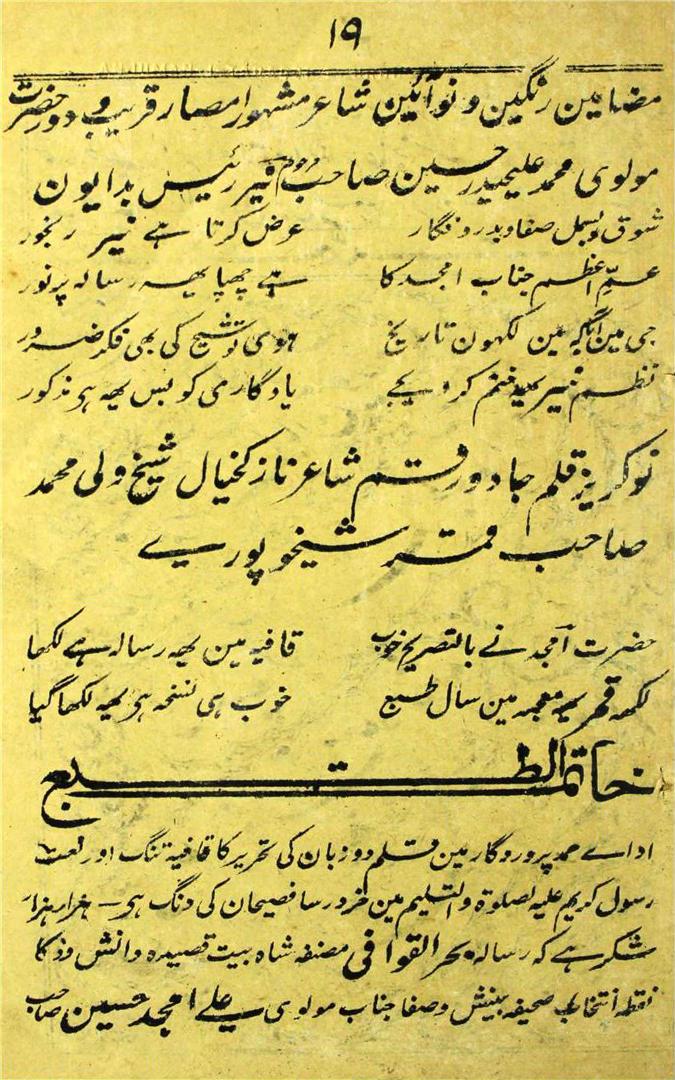 ۱۹
مضامین رنگین و نوآئین شاعر مشہور امصار قریب و دور حضرت
مولوی محمد علیحیدر حسین صاحب نیر رئیس بدایون
شوق بسمل صفا و بدر و فگار عرض کرتا ہے نیر رنجور
عم اعظم جناب امجد کا ہے چھپا یہہ رسالہ پرنور
جی مین آئی کہ مین لکھون تاریخ ہوی توشیح کی بھی فکر ضرور
نظم نیر یہیہ ختم کر دیجے یادگاری کو بس یہہ ہر مذکور
نوکریز قلم جادو رقم شاعر نازکخیال شیخ ولی محمد
صاحب قمر شیخوپوری
حضرت امجد نے بالتصریح خوب قافیہ مین یہہ رسالہ ہے لکھا
لکھہ قمر یہہ معجمہ مین سال طبع خوب ہی نسخہ ہر یہہ لکھا گیا
خاتمۃ الطبع
اداے حمد پروردگار مین قلم دو زبان کی تحریر کا قافیہ تنگ اور نعت
رسول کریم علیہ الصلوۃ والتسلیم مین خرد رسا فصیحان کی دنگ ہر – ہزار ہزار
شکر ہے کہ رسالہ بحر القوافی مصنفہ شاہ بیت قصیدہ دانش و ذکا
نقطہ انتخاب صحیفہ بینش و صفا جناب مولوی علی امجد حسین صاحب